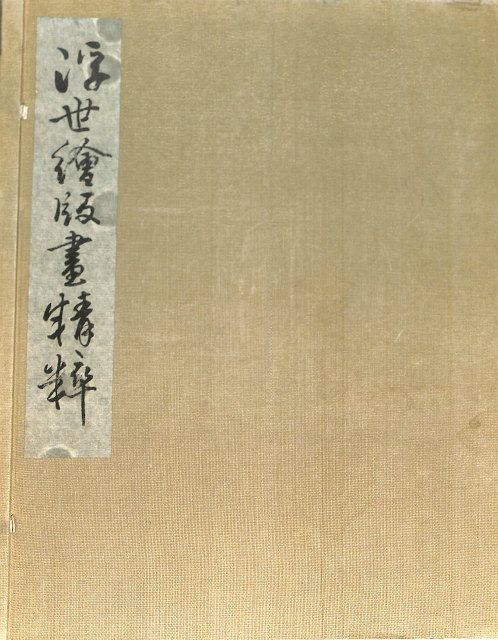 浮世繪版畫精粹